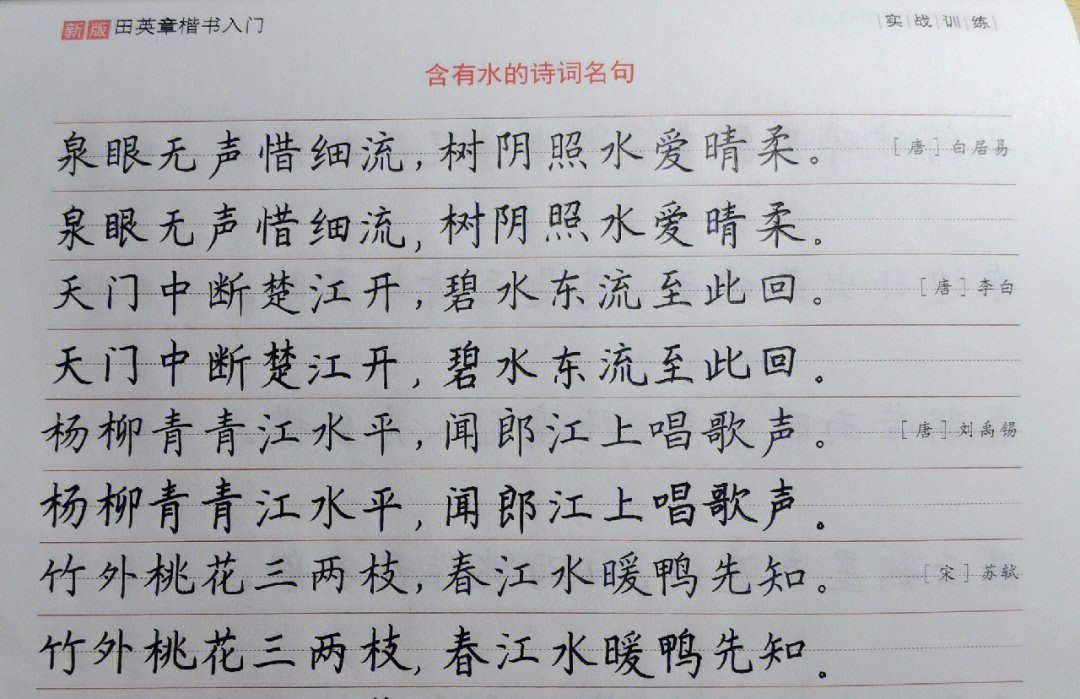 新版 田英章楷书入门
实战训练
含有水的诗词名句
泉眼无声惜细流,树阴照水爱晴柔。 [唐]白居易
泉眼无声惜细流,树阴照水爱晴柔。
天门中断楚江开,碧水东流至此回。 [唐]李白
天门中断楚江开,碧水东流至此回。
杨柳青青江水平,闻郎江上唱歌声。 [唐]刘禹锡
杨柳青青江水平,闻郎江上唱歌声。
竹外桃花三两枝,春江水暖鸭先知。 [宋]苏轼
竹外桃花三两枝,春江水暖鸭先知。